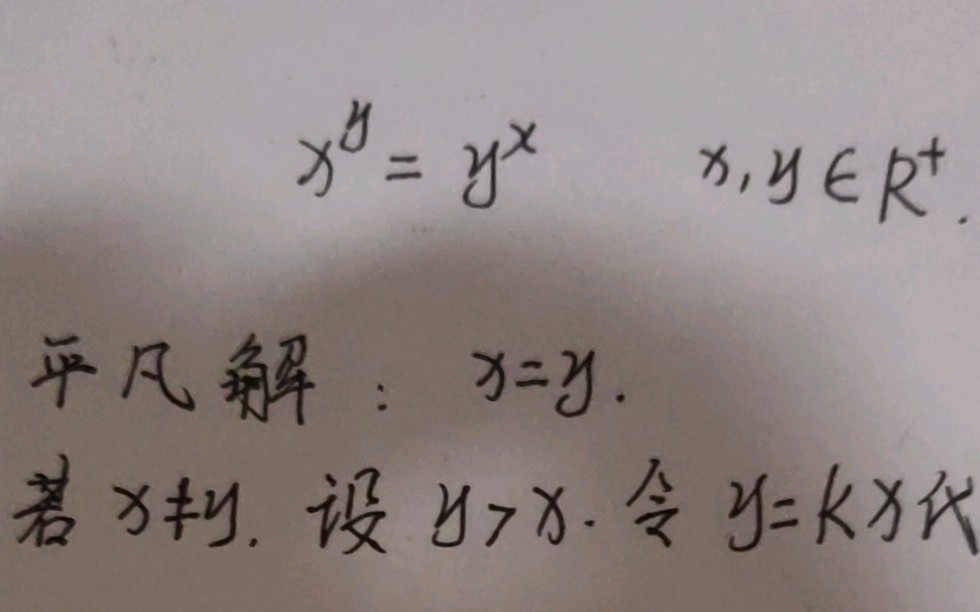 x^y = y^x x,y∈R^+.
平凡解: x=y.
若 x≠y. 设 y>x. 令 y=kx代